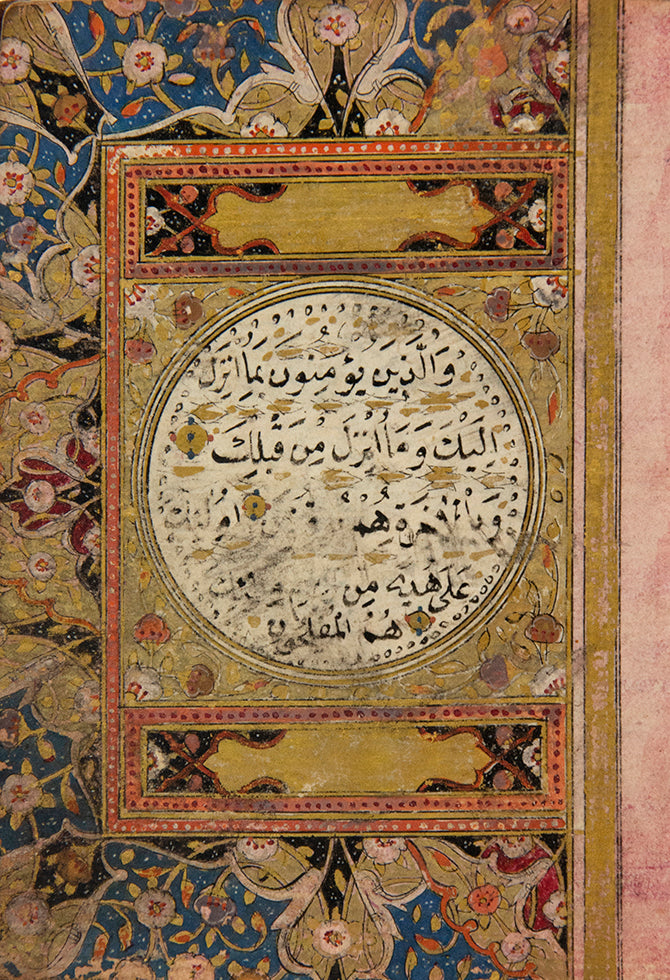 وَالَّذِينَ يُؤْمِنُونَ بِمَا اُنْزِلَ
اِلَيْكَ وَمَا اُنْزِلَ مِنْ قَبْلِكَ
وَبِالْاٰخِرَةِ هُمْ اُولٰئِكَ
عَلٰى هُدًى مِنْ
هُمُ الْمُفْلِحُونَ